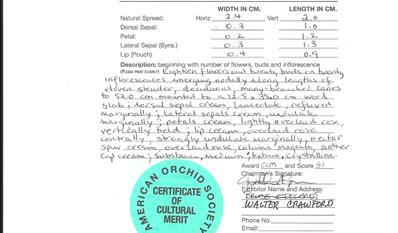 WIDTH IN CM. LENGTH IN CM.
Natural Spread: Horiz 2.4 Vert 2.0
Dorsal Sepal: 0.3 1.0
Petal: 0.2 1.2
Lateral Sepal (Syns.) 0.3 1.3
Lip (Pouch) 0.4 0.9
Description: beginning with number of flowers, buds and inflorescence
(PLEASE PRINT CLEARLY) Eighteen flowers and twenty buds on twenty
inflorescences emerging nodally along lengths of
eleven slender, deciduous, many-branched canes
to 52.0 cm mounted to a 12.5 x 35.0 cm wood
slab; dorsal sepal cream, lanceolate, reflexed
marginally; lateral sepals cream, undulate
marginally; petals cream, lightly overlaid rose,
vertically held; lip cream, overlaid rose
centrally, strongly undulate marginally, nectar
spur cream, overlaid rose; column magenta, anther
cap cream; substance medium; texture crystalline.
Award CCM and Score 81
Chairman's Signature:
Exhibitor Name and Address:
WALTER CRAWFORD
Phone No.
Email:
AMERICAN ORCHID SOCIETY
CERTIFICATE
OF
CULTURAL
MERIT